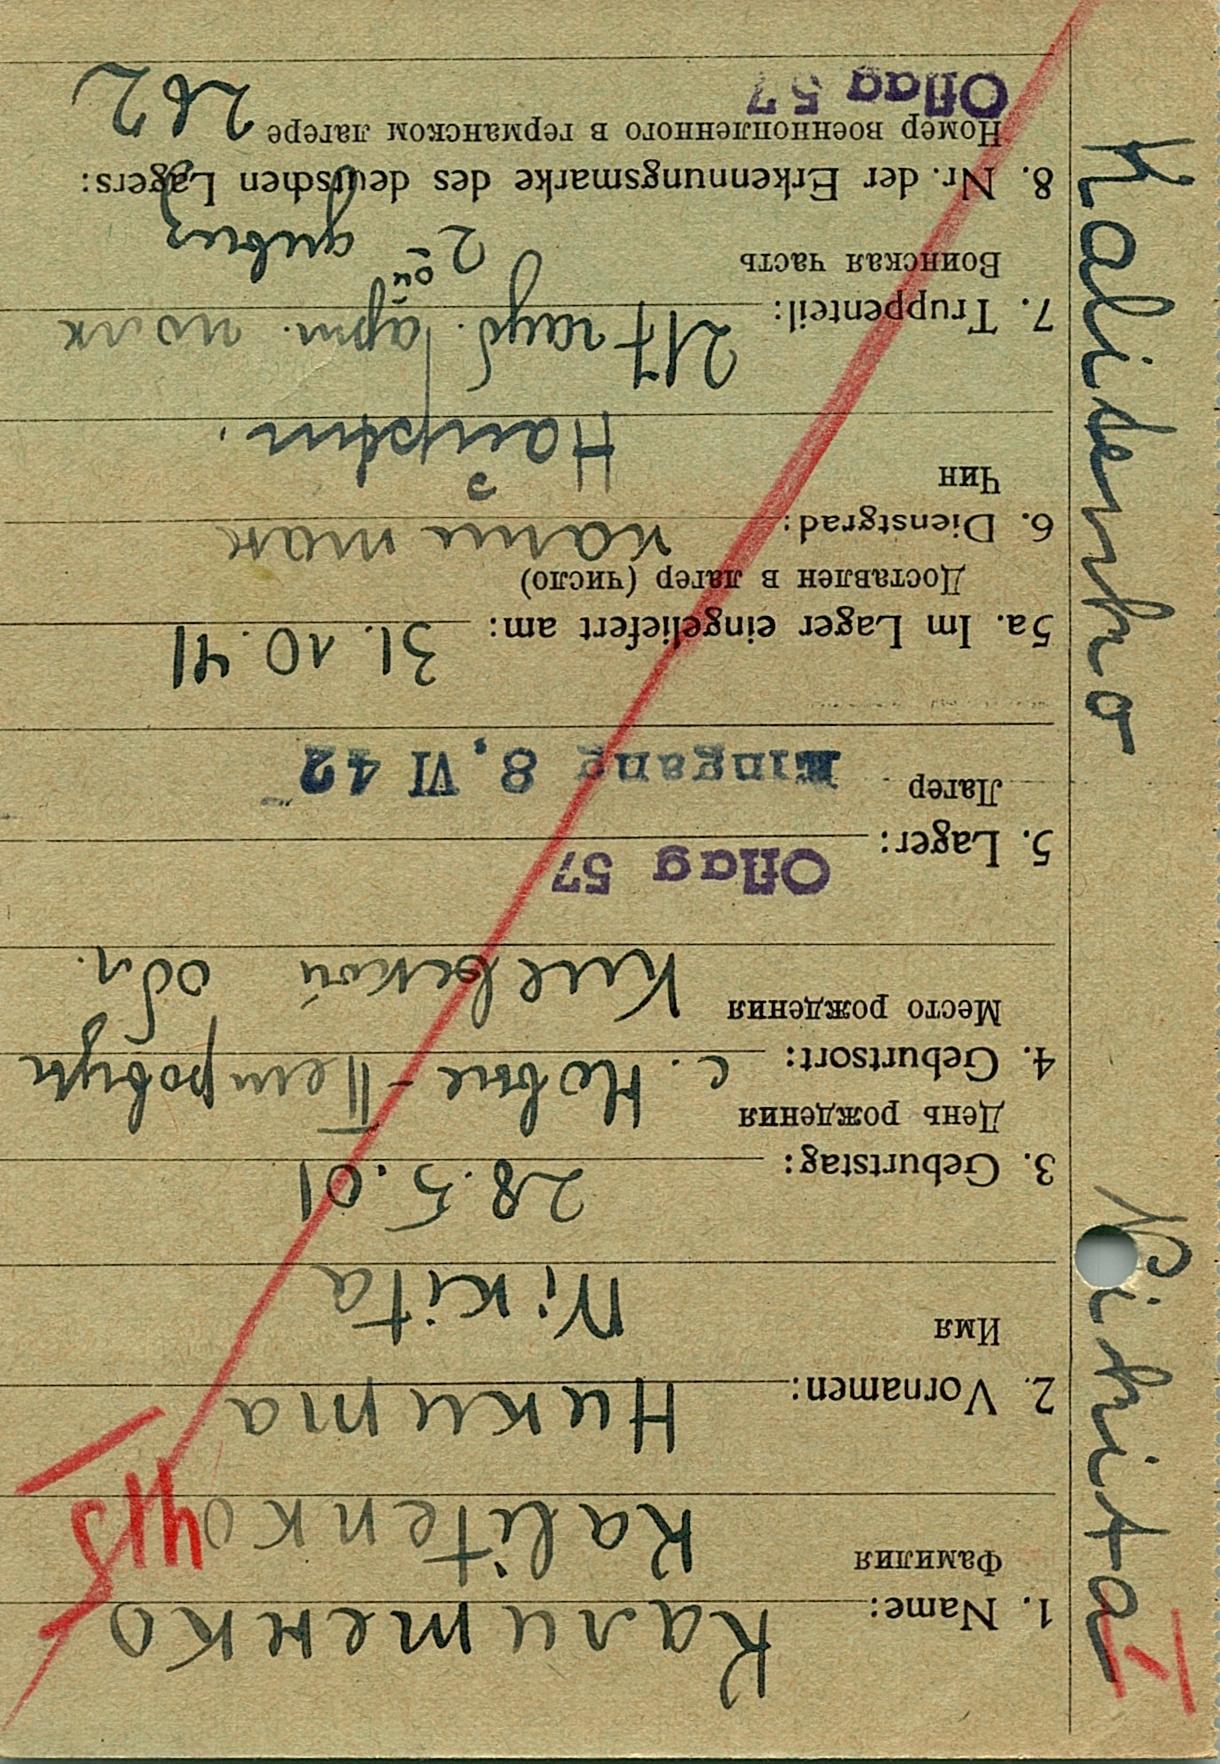 1. Name: Калитенко
Фамилия Kalitenko
415
2. Vornamen: Никита
Имя Nikita
3. Geburtstag: 28.5.01
День рождения
4. Geburtsort: с. Новые-Петровцы
Место рождения Киевской обл.
5. Lager: Oflag 57
Лагер Eingang 8. VI 42
5a. Im Lager eingeliefert am: 31.10.41
Доставлен в лагер (число)
6. Dienstgrad: капитан
Чин Hauptm.
7. Truppenteil: 217 гауб. арт. полк
Воинская часть 2ой дивиз
8. Nr. der Erkennungsmarke des deutschen Lagers:
Номер военнопленного в германском лагере 262
Oflag 57
Kalitenko Nikita
I